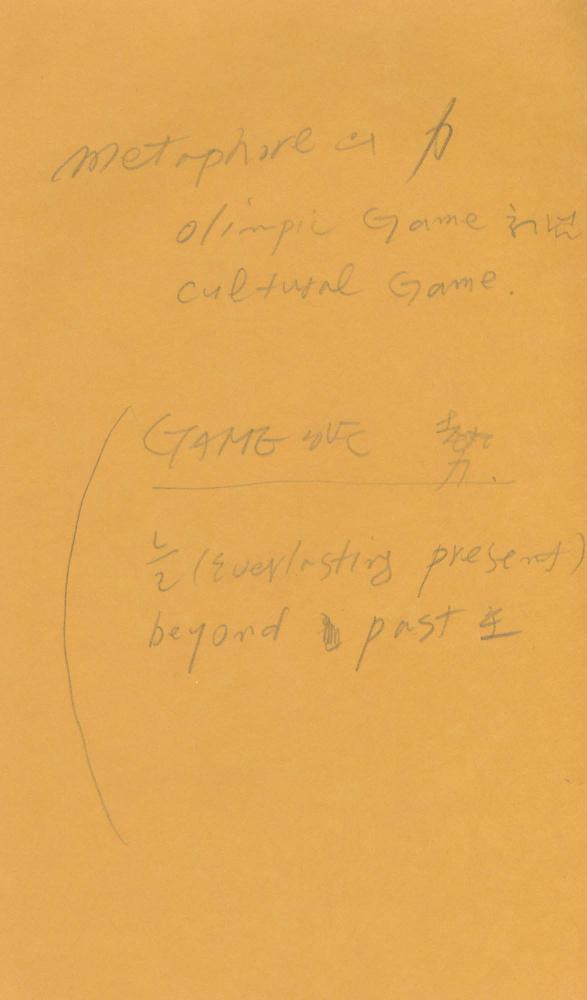 metaphore 의 力
olimpic Game
cultural Game.
GAME 勢
늘 (Everlasting present)
beyond past